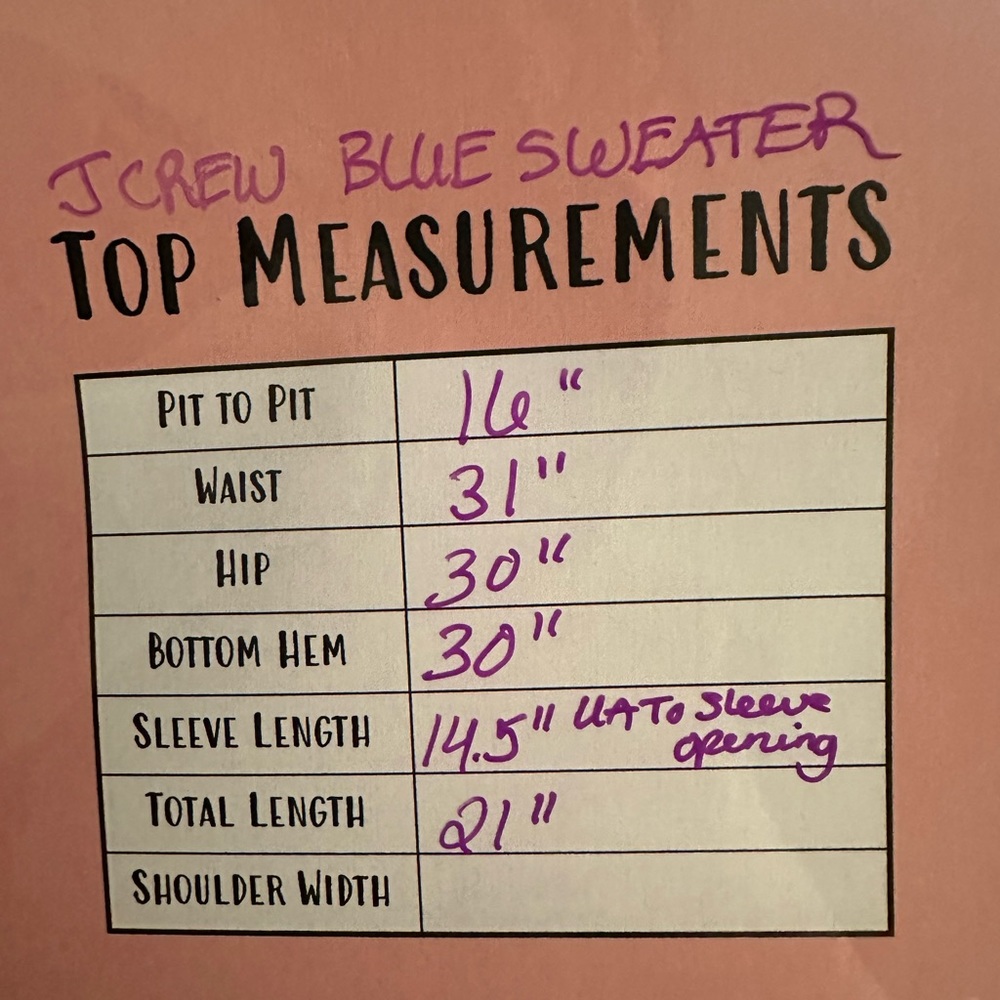 JCREW BLUE SWEATER
TOP MEASUREMENTS
PIT TO PIT 16"
WAIST 31"
HIP 30"
BOTTOM HEM 30"
SLEEVE LENGTH 14.5" UA To Sleeve
opening
TOTAL LENGTH 21"
SHOULDER WIDTH